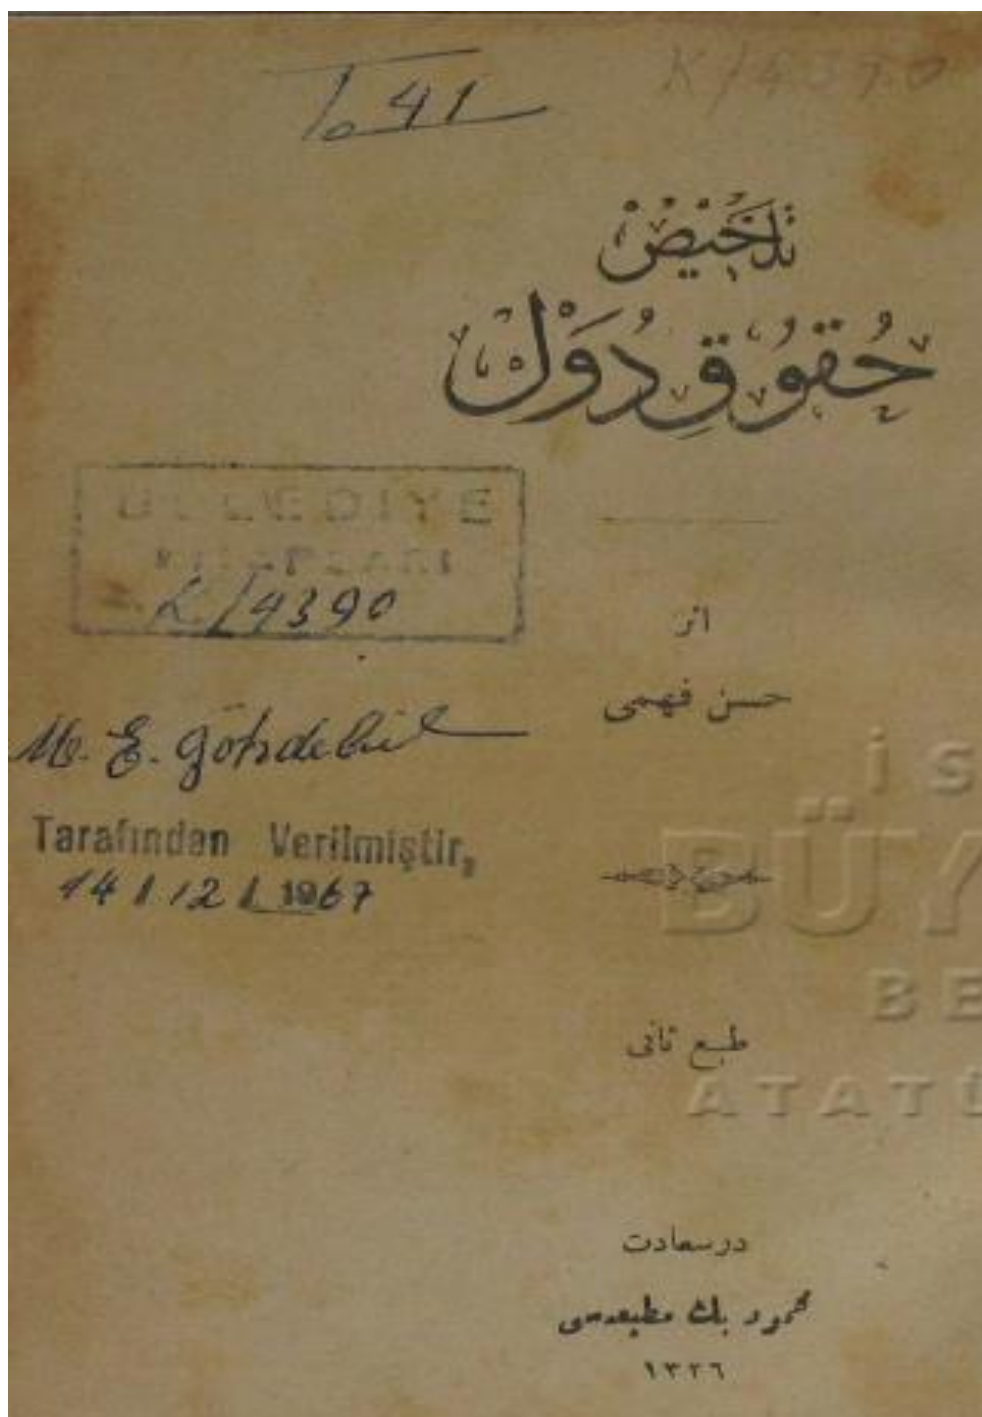 41
K/4370
تلخيص
حُقوُقِ دُوَلْ
BELEDİYE
KİTAPLARI
K/4390
اثر
حسن فهمى
M. E.
Tarafından Verilmiştir,
14 / 12 / 1967
İS
BÜY
BE
ATATÜ
طبع ثانى
درسعادت
محمود بك مطبعه‌سى
١٣٢٦